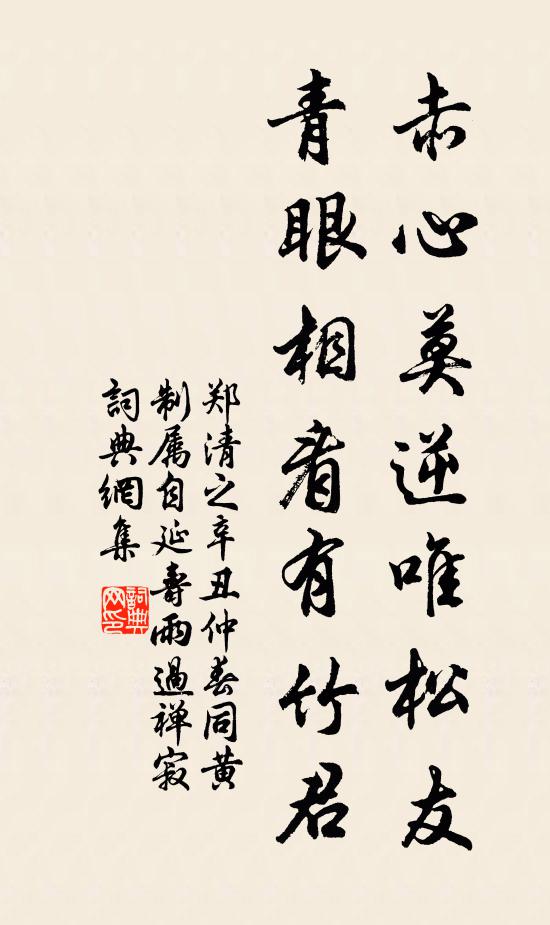 赤心莫逆唯松友
青眼相看有竹君
郑清之辛丑仲春同黄
制属自延寿雨過禅寂
詞典網集
詞典
网印